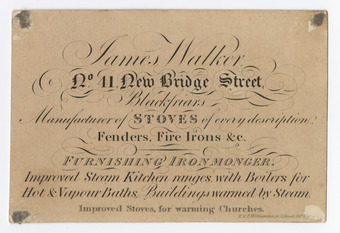 James Walker,
No. 11, New Bridge Street,
Blackfriars
Manufacturer of STOVES of every description,
Fenders, Fire Irons &c.
FURNISHING IRONMONGER.
Improved Steam Kitchen ranges, with Boilers for
Hot & Vapour Baths, Buildings warmed by Steam.
Improved Stoves, for warming Churches.